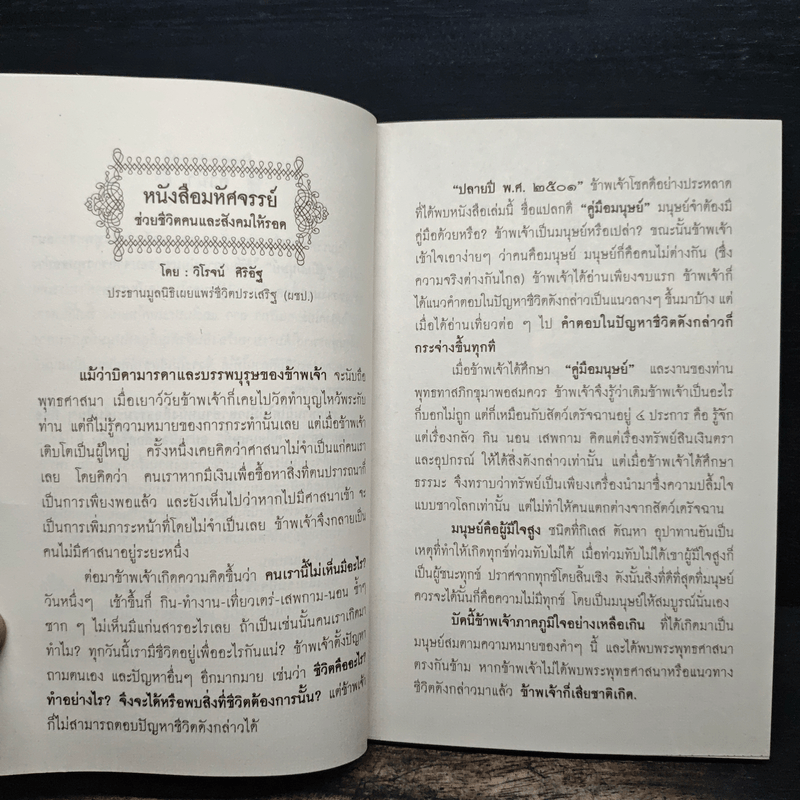 หนังสือมหัศจรรย์
ช่วยชีวิตคนและสังคมให้รอด
โดย : วิโรจน์ ศิริอัฐ
ประธานมูลนิธิเผยแพร่ชีวิตประเสริฐ (ผชป.)
แม้ว่าบิดามารดาและบรรพบุรุษของข้าพเจ้า จะนับถือ
พุทธศาสนา เมื่อเยาว์วัยข้าพเจ้าก็เคยไปวัดทำบุญไหว้พระกับ
ท่าน แต่ก็ไม่รู้ความหมายของการกระทำนั้นเลย แต่เมื่อข้าพเจ้า
เติบโตเป็นผู้ใหญ่ ครั้งหนึ่งเคยคิดว่าศาสนาไม่จำเป็นแก่คนเรา
เลย โดยคิดว่า คนเราหากมีเงินเพื่อซื้อหาสิ่งที่ตนปรารถนาก็
เป็นการเพียงพอแล้ว และยังเห็นไปว่าหากไปมีศาสนาเข้า จะ
เป็นการเพิ่มภาระหน้าที่โดยไม่จำเป็นเลย ข้าพเจ้าจึงกลายเป็น
คนไม่มีศาสนาอยู่ระยะหนึ่ง
ต่อมาข้าพเจ้าเกิดความคิดขึ้นว่า คนเรานี้ไม่เห็นมีอะไร?
วันหนึ่งๆ เช้าขึ้นก็ กิน-ทำงาน-เที่ยวเตร่-เสพกาม-นอน ซ้ำๆ
ซาก ๆ ไม่เห็นมีแก่นสารอะไรเลย ถ้าเป็นเช่นนั้นคนเราเกิดมา
ทำไม? ทุกวันนี้เรามีชีวิตอยู่เพื่ออะไรกันแน่? ข้าพเจ้าตั้งปัญหา
ถามตนเอง และปัญหาอื่นๆ อีกมากมาย เช่นว่า ชีวิตคืออะไร?
ทำอย่างไร? จึงจะได้หรือพบสิ่งที่ชีวิตต้องการนั้น? แต่ข้าพเจ้า
ก็ไม่สามารถตอบปัญหาชีวิตดังกล่าวได้
"ปลายปี พ.ศ. ๒๕๐๑" ข้าพเจ้าโชคดีอย่างประหลาด
ที่ได้พบหนังสือเล่มนี้ ชื่อแปลกดี "คู่มือมนุษย์" มนุษย์จำต้องมี
คู่มือด้วยหรือ? ข้าพเจ้าเป็นมนุษย์หรือเปล่า? ขณะนั้นข้าพเจ้า
เข้าใจเอาง่ายๆ ว่าคนคือมนุษย์ มนุษย์ก็คือคนไม่ต่างกัน (ซึ่ง
ความจริงต่างกันไกล) ข้าพเจ้าได้อ่านเพียงจบแรก ข้าพเจ้าก็
ได้แนวคำตอบในปัญหาชีวิตดังกล่าวเป็นแนวลางๆ ขึ้นมาบ้าง แต่
เมื่อได้อ่านเที่ยวต่อ ๆ ไป คำตอบในปัญหาชีวิตดังกล่าวก็
กระจ่างขึ้นทุกที
เมื่อข้าพเจ้าได้ศึกษา "คู่มือมนุษย์" และงานของท่าน
พุทธทาสภิกขุมาพอสมควร ข้าพเจ้าจึงรู้ว่าเดิมข้าพเจ้าเป็นอะไร
ก็บอกไม่ถูก แต่ก็เหมือนกับสัตว์เดรัจฉานอยู่ ๔ ประการ คือ รู้จัก
แต่เรื่องกลัว กิน นอน เสพกาม คิดแต่เรื่องทรัพย์สินเงินตรา
และอุปกรณ์ ให้ได้สิ่งดังกล่าวเท่านั้น แต่เมื่อข้าพเจ้าได้ศึกษา
ธรรมะ จึงทราบว่าทรัพย์เป็นเพียงเครื่องนำมาซึ่งความปลื้มใจ
แบบชาวโลกเท่านั้น แต่ไม่ทำให้คนแตกต่างจากสัตว์เดรัจฉาน
มนุษย์คือผู้มีใจสูง ชนิดที่กิเลส ตัณหา อุปาทานอันเป็น
เหตุที่ทำให้เกิดทุกข์ท่วมทับไม่ได้ เมื่อท่วมทับไม่ได้เขาผู้มีใจสูงก็
เป็นผู้ชนะทุกข์ ปราศจากทุกข์โดยสิ้นเชิง ดังนั้นสิ่งที่ดีที่สุดที่มนุษย์
ควรจะได้นั้นก็คือความไม่มีทุกข์ โดยเป็นมนุษย์ให้สมบูรณ์นั่นเอง
บัดนี้ข้าพเจ้าภาคภูมิใจอย่างเหลือเกิน ที่ได้เกิดมาเป็น
มนุษย์สมตามความหมายของคำๆ นี้ และได้พบพระพุทธศาสนา
ตรงกันข้าม หากข้าพเจ้าไม่ได้พบพระพุทธศาสนาหรือแนวทาง
ชีวิตดังกล่าวมาแล้ว ข้าพเจ้าก็เสียชาติเกิด.